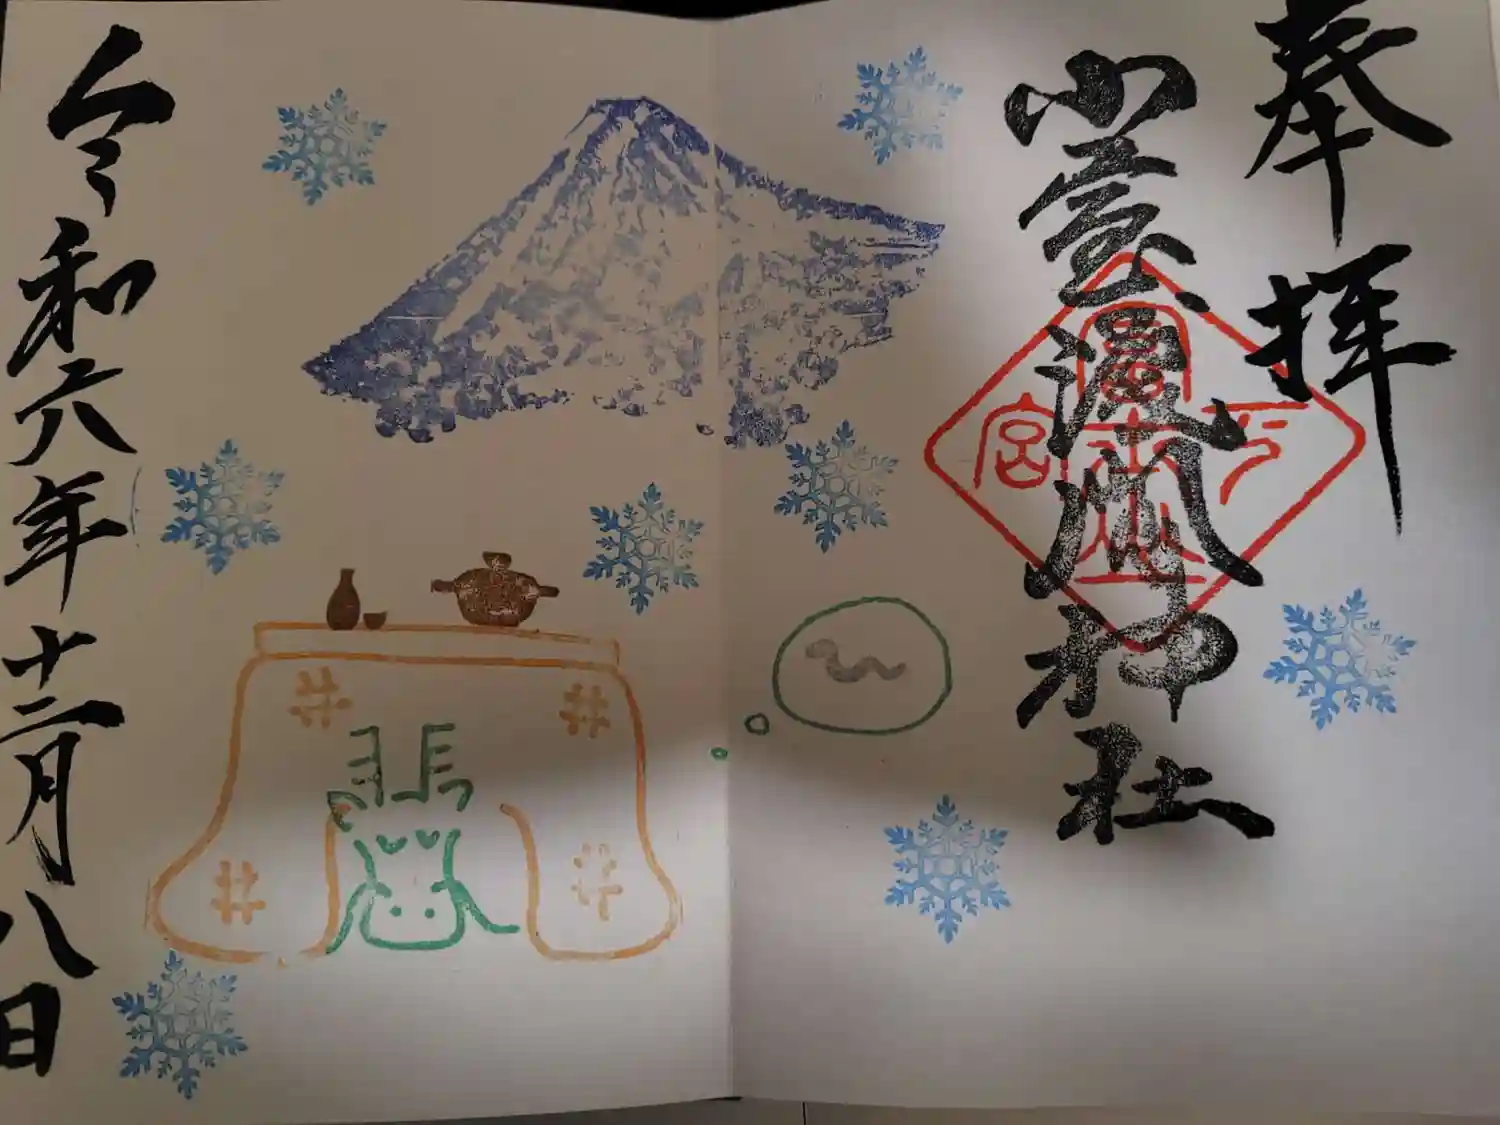 奉拝
小室浅間神社
下宮
令和六年十二月八日